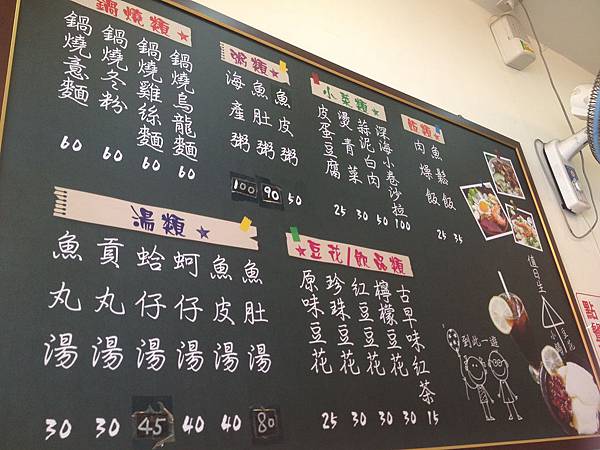 鍋燒類
鍋燒意麵 60
鍋燒冬粉 60
鍋燒雞絲麵 60
鍋燒烏龍麵 60
粥類
海產粥 100
魚肚粥 90
魚皮粥 50
小菜類
皮蛋豆腐 25
燙青菜 30
蒜泥白肉 50
深海小卷沙拉 100
飯類
肉燥飯 25
魚鬆飯 35
湯類
魚丸湯 30
貢丸湯 30
蛤仔湯 45
蚵仔湯 40
魚皮湯 40
魚肚湯 80
豆花/飲品類
原味豆花 25
珍珠豆花 30
紅豆豆花 30
檸檬豆花 30
古早味紅茶 15
到此一遊
值日生
點餐